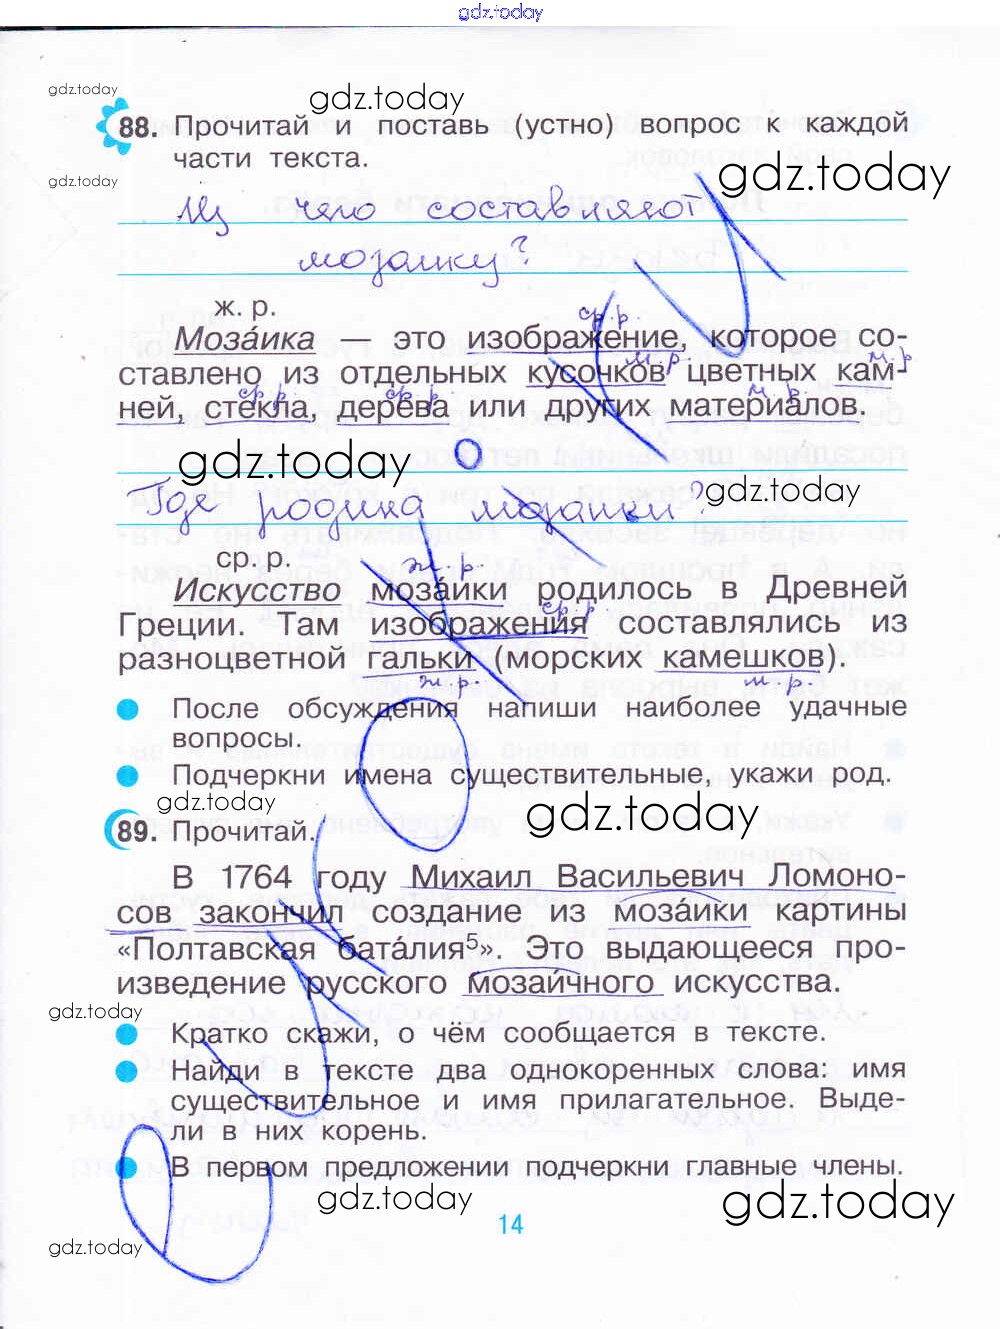 gdz.today
gdz.today
gdz.today
88. Прочитай и поставь (устно) вопрос к каждой
части текста.
gdz.today
gdz.today
Из чего составляют
мозаику?
ж. р.
ср. р.
Моза́ика — это изображение, которое со-
м. р.
м. р.
ставлено из отдельных кусочков цветных кам-
ср. р.
ср. р.
м. р.
ней, стекла, дерева или других материалов.
gdz.today
gdz.today
Где родина мозаики?
ср. р.
ж. р.
Искусство моза́ики родилось в Древней
ср. р.
Греции. Там изображения составлялись из
разноцветной гальки (морских камешков).
ж. р.
м. р.
После обсуждения напиши наиболее удачные
вопросы.
Подчеркни имена существительные, укажи род.
gdz.today
gdz.today
89. Прочитай.
В 1764 году Михаил Васильевич Ломоно-
сов закончил создание из моза́ики картины
«Полтавская бата́лия⁵». Это выдающееся про-
изведение русского мозаи́чного искусства.
gdz.today
Кратко скажи, о чём сообщается в тексте.
Найди в тексте два однокоренных слова: имя
существительное и имя прилагательное. Выде-
ли в них корень.
В первом предложении подчеркни главные члены.
gdz.today
gdz.today
14
gdz.today